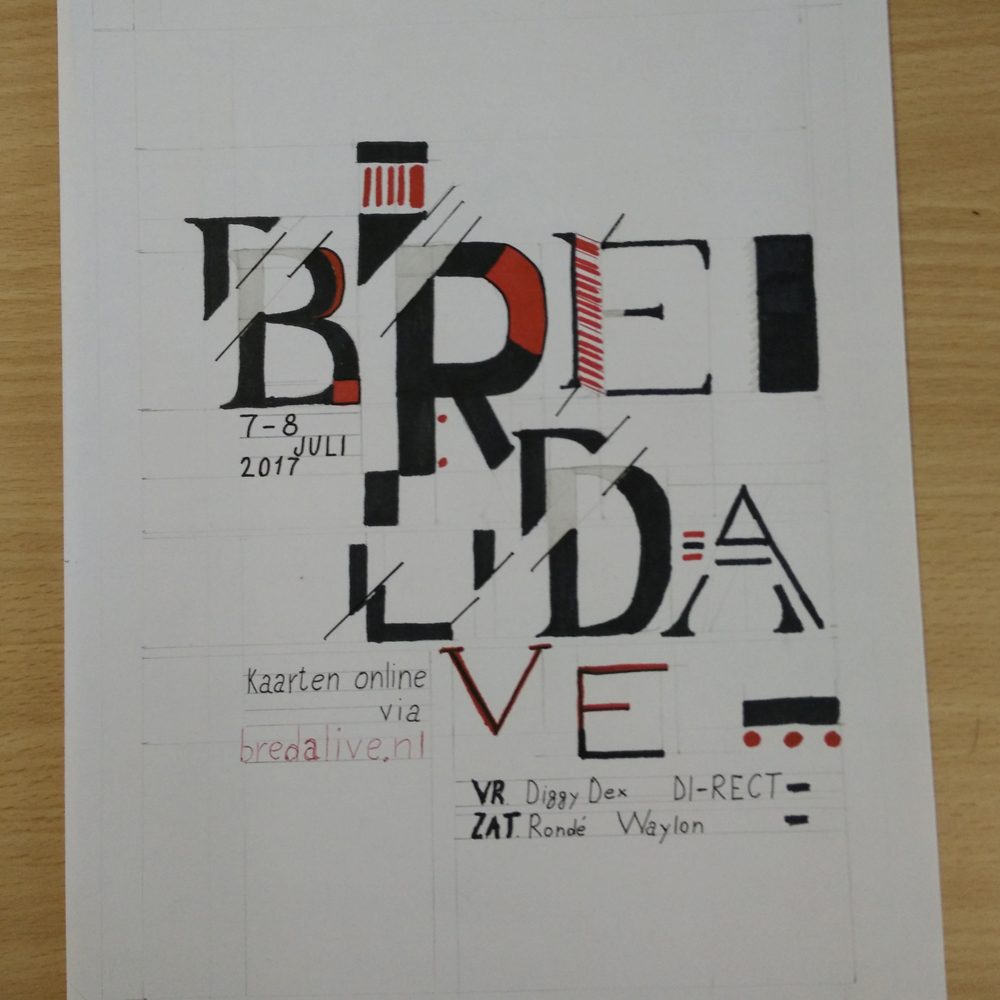 BRE
DA
LI
VE
7-8
JULI
2017
Kaarten online
via
bredalive.nl
VR. Diggy Dex DI-RECT
ZAT. Rondé Waylon